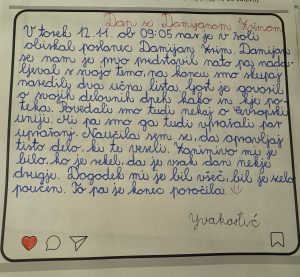 Dan z Damijanom Zrimom
V torek 12. 11. ob 09:05 nas je v šoli
obiskal poslanec Damijan Zrim. Damijan
se nam je prvo predstavil nato pa nada-
ljeval s svojo temo, na koncu smo skupaj
naredili dva učna lista. Gost je govoril
o svojih delovnih dneh kako in kje po-
teka. Povedali smo tudi nekaj o Evropski
uniji. Mi pa smo ga tudi vprašali par
vprašanj. Naučila sem se, da opravljaj
tisto delo, ki te veseli. Zanimivo mi je
bilo, ko je rekel, da je vsak dan nekje
drugje. Dogodek mi je bil všeč, bil je zelo
poučen. To pa je konec poročila.